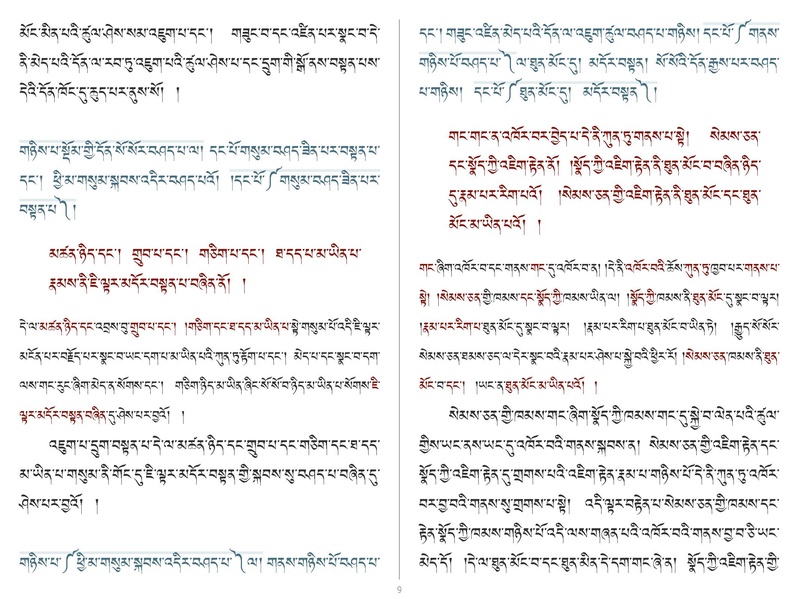 མོང་མིན་པའི་ཚུལ་ཤེས་སམ་འཇུག་པ་དང་། གཟུང་བ་དང་འཛིན་པར་སྣང་བ་དེ་
ནི་མེད་པའི་དོན་ལ་རབ་ཏུ་འཇུག་པའི་ཚུལ་ཤེས་པ་དང་དྲུག་གི་སྒོ་ནས་བསྟན་པས་
དེའི་དོན་ཁོང་དུ་ཆུད་པར་ནུས་སོ། །
གཉིས་པ་སྡོམ་གྱི་དོན་སོ་སོར་བཤད་པ་ལ། དང་པོ་གསུམ་བཤད་ཟིན་པར་བསྟན་པ་
དང་། ཕྱི་མ་གསུམ་སྐབས་འདིར་བཤད་པའོ། །དང་པོ་༼གསུམ་བཤད་ཟིན་པར་
བསྟན་པ་༽ནི།
མཚན་ཉིད་དང་། གྲུབ་པ་དང་། གཅིག་པ་དང་། ཐ་དད་པ་མ་ཡིན་པ་
རྣམས་ནི་ཇི་ལྟར་མདོར་བསྟན་པ་བཞིན་ནོ། །
དེ་ལ་མཚན་ཉིད་དང་འབྲས་བུ་གྲུབ་པ་དང་། །གཅིག་དང་ཐ་དད་མ་ཡིན་པ་སྟེ་གསུམ་པོ་འདི་ཇི་ལྟར་
མངོན་པར་བརྗོད་པར་སྣང་བ་ཡང་དག་པ་མ་ཡིན་པའི་ཀུན་ཏུ་རྟོག་པ་དང་། མེད་པ་དང་སྣང་བ་དག་
ལས་གང་རུང་ཞིག་མེད་ན་སོགས་དང་། གཅིག་ཉིད་མ་ཡིན་ཞིང་སོ་སོ་བ་ཉིད་མ་ཡིན་པ་སོགས་ཇི་
ལྟར་མདོར་བསྟན་བཞིན་དུ་ཤེས་པར་བྱའོ། །
འཇུག་པ་དྲུག་བསྟན་པ་དེ་ལ་མཚན་ཉིད་དང་གྲུབ་པ་དང་གཅིག་དང་ཐ་དད་
མ་ཡིན་པ་གསུམ་ནི་གོང་དུ་ཇི་ལྟར་མདོར་བསྟན་གྱི་སྐབས་སུ་བཤད་པ་བཞིན་དུ་
ཤེས་པར་བྱའོ། །
གཉིས་པ་༼ཕྱི་མ་གསུམ་སྐབས་འདིར་བཤད་པ་༽ལ། གནས་གཉིས་པོ་བཤད་པ་
དང་། གཟུང་འཛིན་མེད་པའི་དོན་ལ་འཇུག་ཚུལ་བཤད་པ་གཉིས། དང་པོ་༼གནས་
གཉིས་པོ་བཤད་པ་༽ལ་ཐུན་མོང་དུ། མདོར་བསྟན། སོ་སོའི་དོན་རྒྱས་པར་བཤད་
པ་གཉིས། དང་པོ་༼ཐུན་མོང་དུ། མདོར་བསྟན་༽ནི།
གང་གང་ན་འཁོར་བར་བྱེད་པ་དེ་ནི་ཀུན་ཏུ་གནས་པ་སྟེ། སེམས་ཅན་
དང་སྣོད་ཀྱི་འཇིག་རྟེན་ནོ། །སྣོད་ཀྱི་འཇིག་རྟེན་ནི་ཐུན་མོང་བ་བཞིན་ཉིད་
དུ་རྣམ་པར་རིག་པའོ། །སེམས་ཅན་གྱི་འཇིག་རྟེན་ནི་ཐུན་མོང་དང་ཐུན་
མོང་མ་ཡིན་པའོ། །
གང་ཞིག་འཁོར་བ་དང་གནས་གང་དུ་འཁོར་བ་ན། །དེ་ནི་འཁོར་བའི་ཆོས་ཀུན་ཏུ་ཁྱབ་པར་གནས་པ་
སྟེ། །སེམས་ཅན་གྱི་ཁམས་དང་སྣོད་ཀྱི་ཁམས་ཡིན་ལ། །སྣོད་ཀྱི་ཁམས་ནི་ཐུན་མོང་དུ་སྣང་བ་ལྟར།
།རྣམ་པར་རིག་པ་ཐུན་མོང་དུ་སྣང་བ་ལྟར། །རྣམ་པར་རིག་པ་ཐུན་མོང་བ་ཡིན་ཏེ། །རྒྱུད་སོ་སོར་
སེམས་ཅན་ཐམས་ཅད་ལ་དེར་སྣང་བའི་རྣམ་པར་ཤེས་པ་སྐྱེ་བའི་ཕྱིར་རོ། །སེམས་ཅན་ཁམས་ནི་ཐུན་
མོང་བ་དང་། །ཡང་ན་ཐུན་མོང་མ་ཡིན་པའོ། །
སེམས་ཅན་གྱི་ཁམས་གང་ཞིག་སྣོད་ཀྱི་ཁམས་གང་དུ་སྐྱེ་བ་ལེན་པའི་ཚུལ་
གྱིས་ཡང་ནས་ཡང་དུ་འཁོར་བའི་གནས་སྐབས་ན། སེམས་ཅན་གྱི་འཇིག་རྟེན་དང་
སྣོད་ཀྱི་འཇིག་རྟེན་དུ་གྲགས་པའི་འཇིག་རྟེན་རྣམ་པ་གཉིས་པོ་དེ་ནི་ཀུན་ཏུ་འཁོར་
བར་བྱ་བའི་གནས་སུ་གྲགས་པ་སྟེ། འདི་ལྟར་བརྟེན་པ་སེམས་ཅན་གྱི་ཁམས་དང་
རྟེན་སྣོད་ཀྱི་ཁམས་གཉིས་པོ་འདི་ལས་གཞན་པའི་འཁོར་བའི་གནས་བྱ་བ་ཅི་ཡང་
མེད་དོ། །དེ་ལ་ཐུན་མོང་བ་དང་ཐུན་མིན་དེ་དག་གང་ཞེ་ན། སྣོད་ཀྱི་འཇིག་རྟེན་གྱི་
9